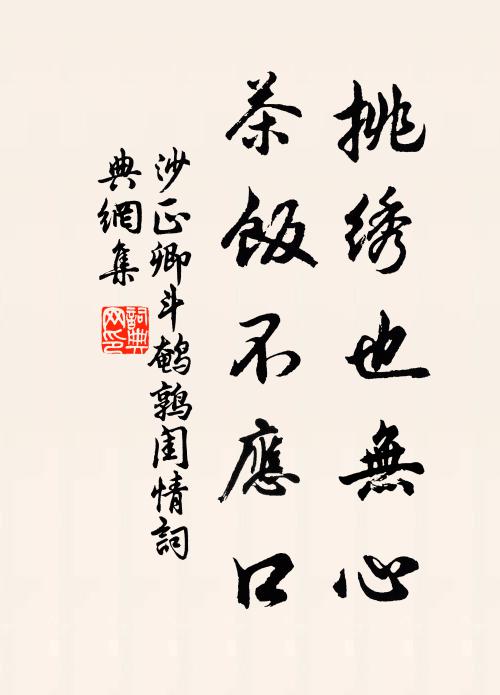 挑绣也無心
茶飯不應口
沙正卿斗鹌鹑闺情詞
典網集
詞典网印